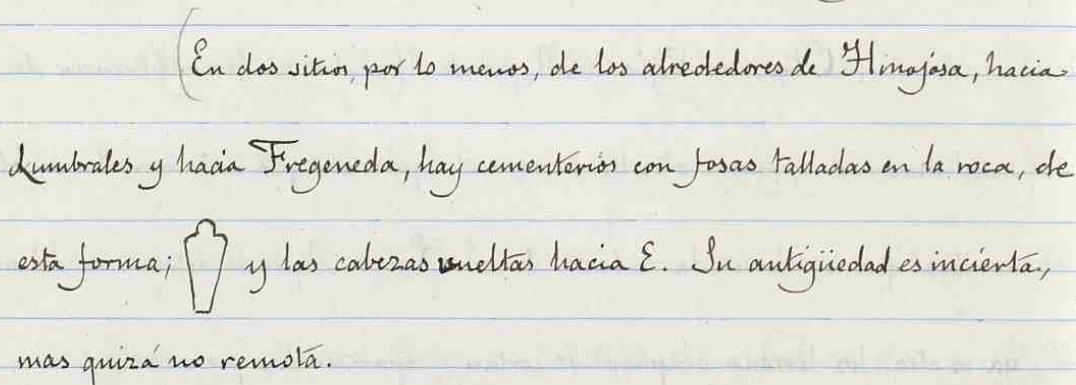 (En dos sitios, por lo menos, de los alrededores de Hinojosa, hacia
Lumbrales y hacia Fregeneda, hay cementerios con fosas talladas en la roca, de
esta forma; y las cabezas vueltas hacia E. Su antigüedad es incierta,
mas quizá no remota.